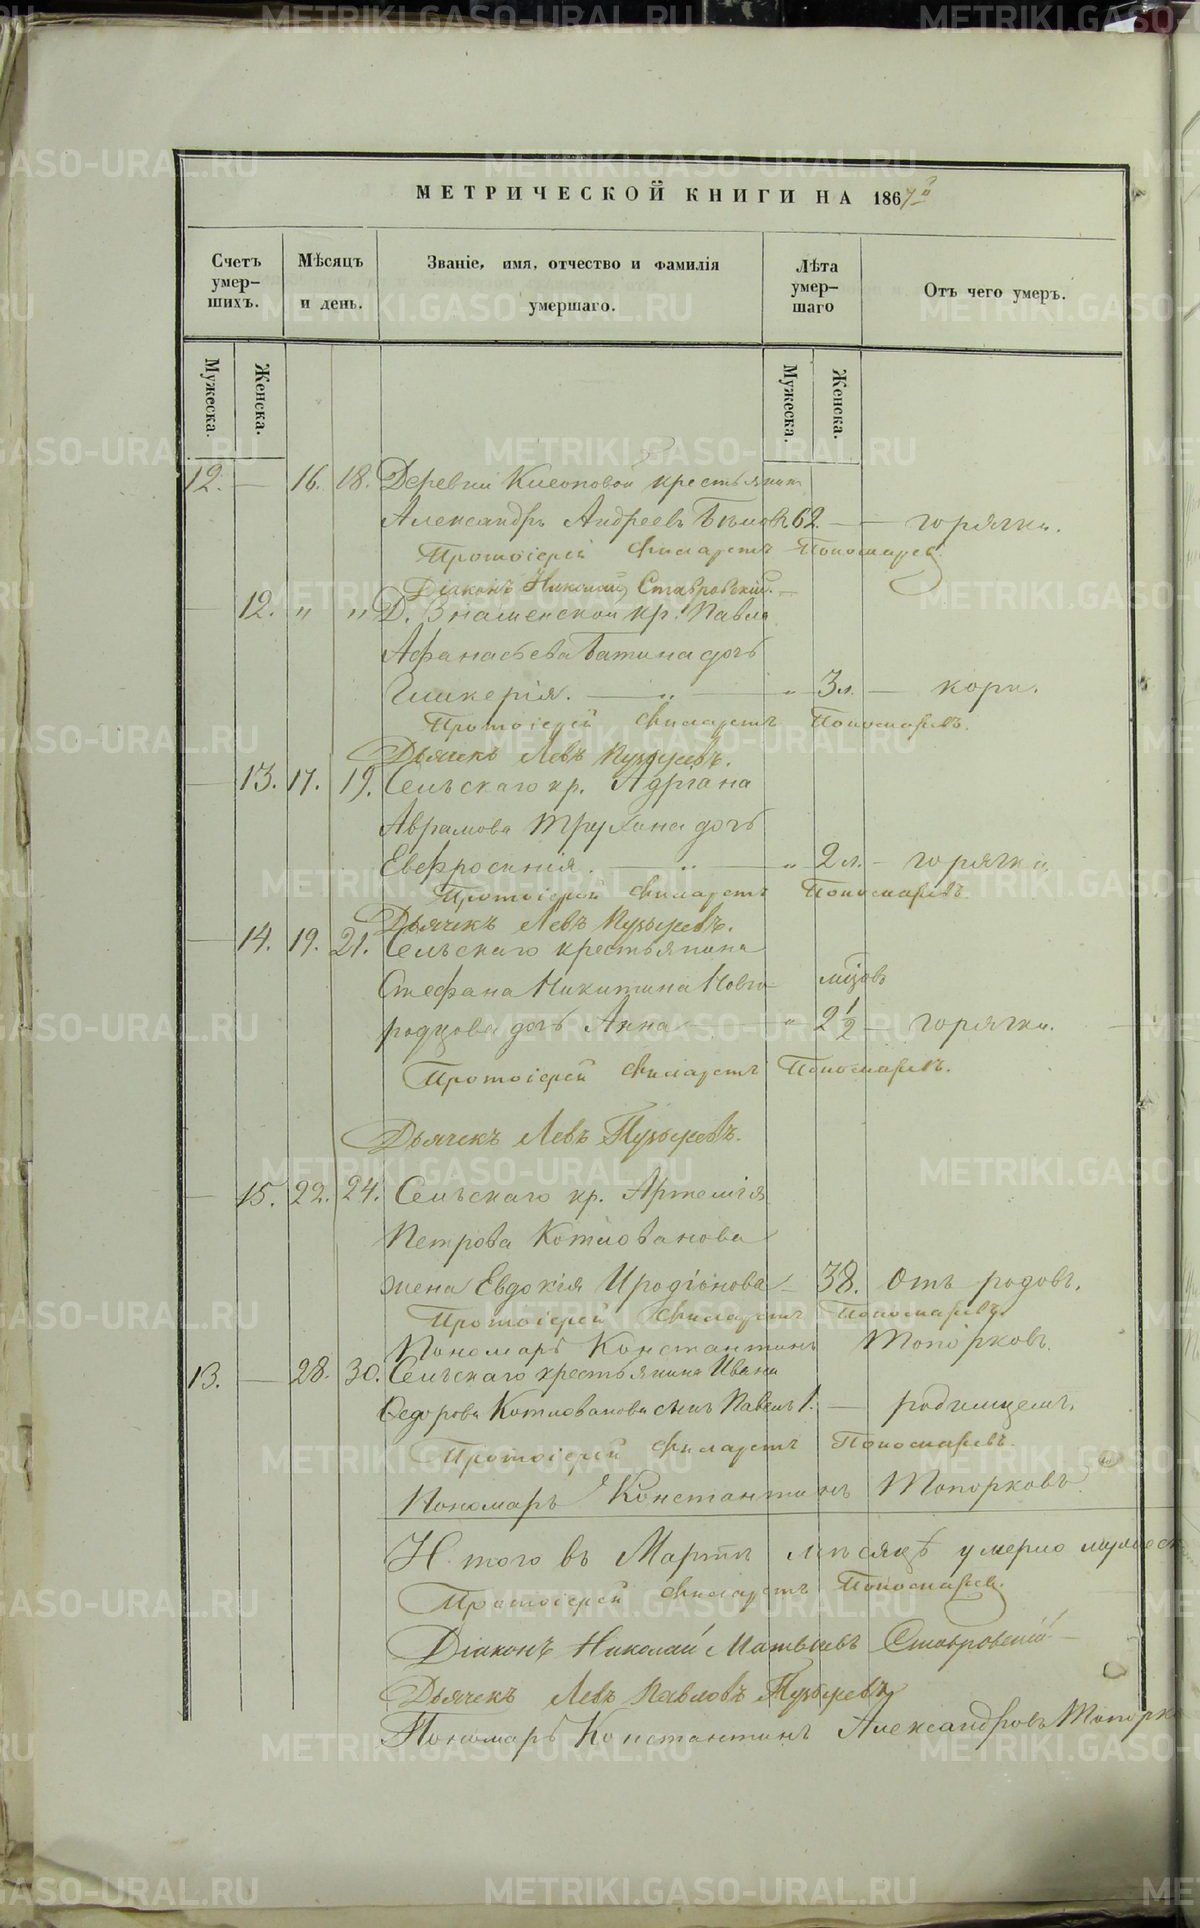 МЕТРИЧЕСКОЙ КНИГИ НА 1867 го
Счетъ умер-шихъ.
Мѣсяцъ и день.
Званіе, имя, отчество и фамилія умершаго.
Лѣта умер-шаго
Отъ чего умеръ.
Мужеска.
Женска.
Мужеска.
Женска.
12. — 16. 18. Деревни крестьянин
Александръ Андреевъ Бѣловъ 62 — — горячки.
Протоіерей Филаретъ Пономарев
Діаконъ Николай Ставровскій.
— 12. " " Д. Знаменской кр. Павла
Афанасьева Батина дочь
Гликерія. — " — " 3 л. — кори.
Протоіерей Филаретъ Пономаревъ.
Дьячекъ Левъ Пузыревъ.
— 13. 17. 19. Сельскаго кр. Адріана
Аврамова Трухина дочь
Евфросинія. — " — " 2 л. — горячки
Протоіерей Филаретъ Пономаревъ.
Дьячекъ Левъ Пузыревъ.
— 14. 19. 21. Сельскаго крестьянина
Стефана Никитина Новго- мцов
родцова дочь Анна — " 2 1/2 — горячки.
Протоіерей Филаретъ Пономаревъ.
Дьячекъ Левъ Пузыревъ.
— 15. 22. 24. Сельскаго кр. Артемія
Петрова Котлованова
жена Евдокія Иродіонова — 38. Отъ родовъ.
Протоіерей Филаретъ Пономаревъ
Пономарь Константинъ Топорковъ.
13. — 28. 30. Сельскаго крестьянина Ивана
Ѳедорова Котлованова сынъ Павелъ 1. — родимцемъ.
Протоіерей Филаретъ Пономаревъ.
Пономарь Константинъ Топорковъ.
Итого въ Мартѣ мѣсяцѣ умерло мужеск
Протоіерей Филаретъ Пономарев.
Діаконъ Николай Матвѣевъ Ставровскій —
Дьячекъ Левъ Павловъ Пузыревъ
Пономарь Константинъ Александровъ Топорк
METRIKI.GASO-URAL.RU